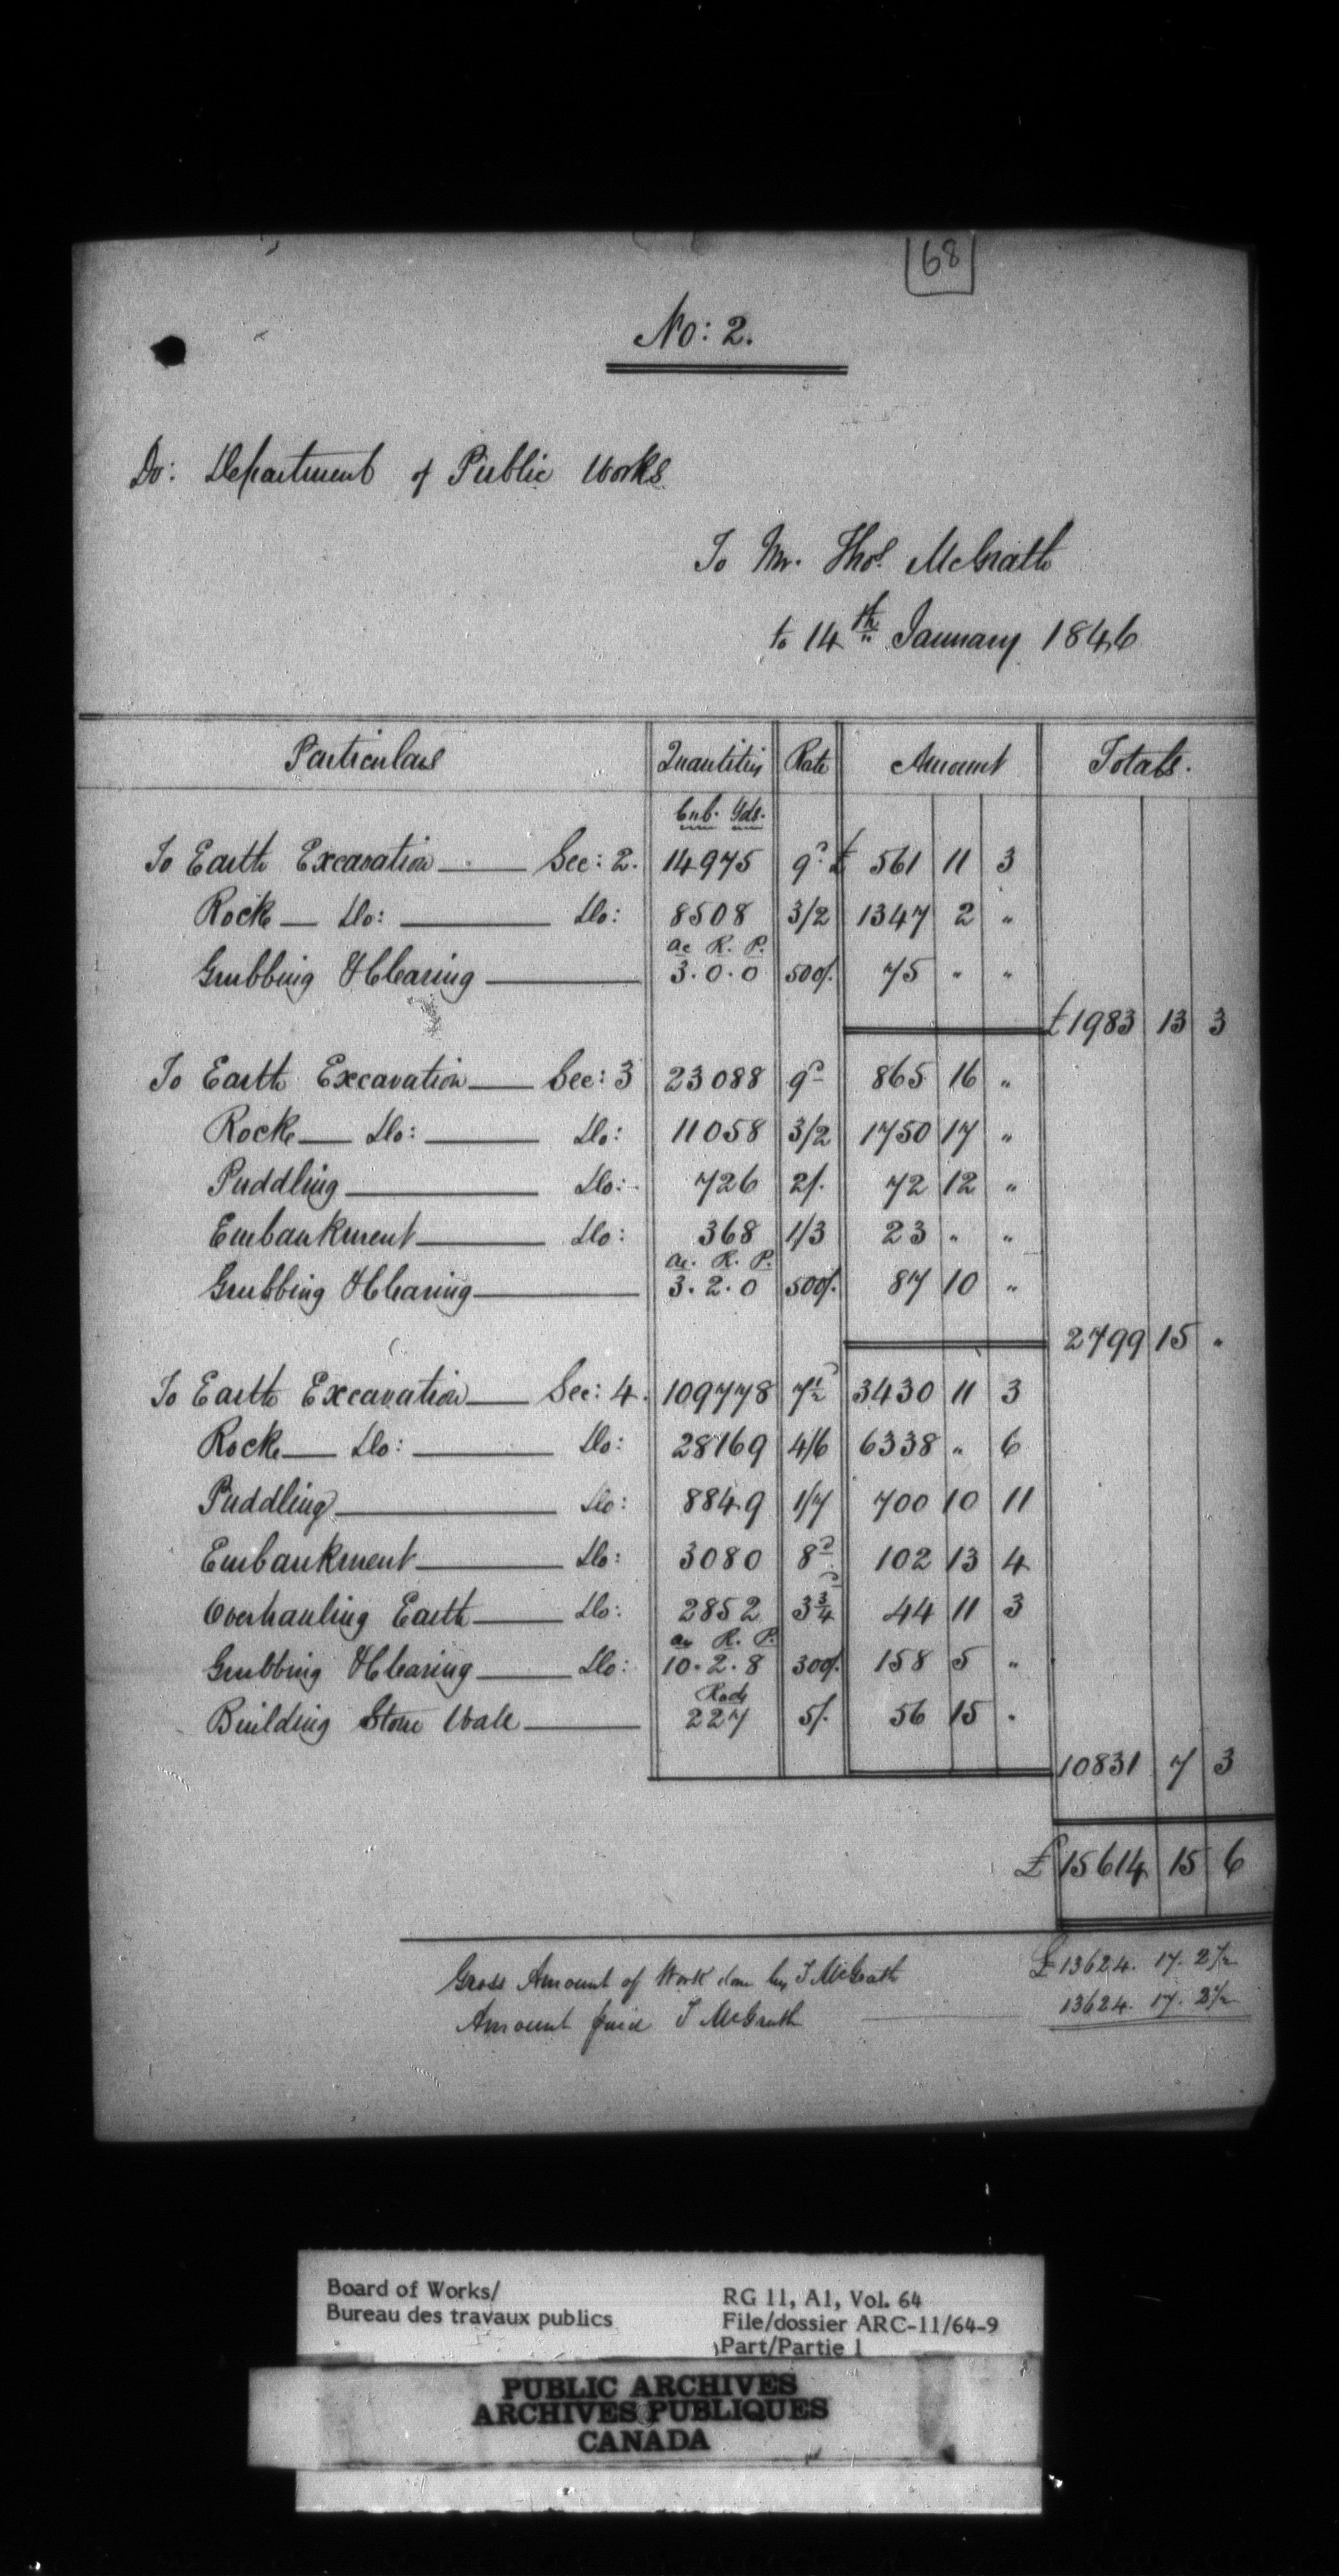 68
No: 2.
Dr: Department of Public Works
To Mr. Thos. McGrath
to 14th January 1846
Particulars Quantities Rate Amount Totals.
Cub. Yds.
To Earth Excavation Sec: 2. 14975 9d £ 561 11 3
Rock Do: Do: 8508 3/2 1347 2 "
ac R. P.
Grubbing & Clearing 3.0.0 500/. 75 " "
£1983 13 3
To Earth Excavation Sec: 3 23088 9d 865 16 "
Rock Do: Do: 11058 3/2 1750 17 "
Puddling Do: 726 2/. 72 12 "
Embankment Do: 368 1/3 23 " "
ac. R. P.
Grubbing & Clearing 3.2.0 500/. 87 10 "
2799 15 "
To Earth Excavation Sec: 4. 109778 7½d 3430 11 3
Rock Do: Do: 28169 4/6 6338 " 6
Puddling Do: 8849 1/7 700 10 11
Embankment Do: 3080 8d 102 13 4
Overhauling Earth Do: 2852 3¾d 44 11 3
ac R. P.
Grubbing & Clearing Do: 10.2.8 300/. 158 5 "
Rods
Building Stone Wall 227 5/. 56 15 "
10831 7 3
£ 15614 15 6
Gross Amount of Work done by T McGrath £13624. 17. 2½
Amount paid T McGrath 13624. 17. 2½
Board of Works/
Bureau des travaux publics
RG 11, A1, Vol. 64
File/dossier ARC-11/64-9
Part/Partie 1
PUBLIC ARCHIVES
ARCHIVES PUBLIQUES
CANADA